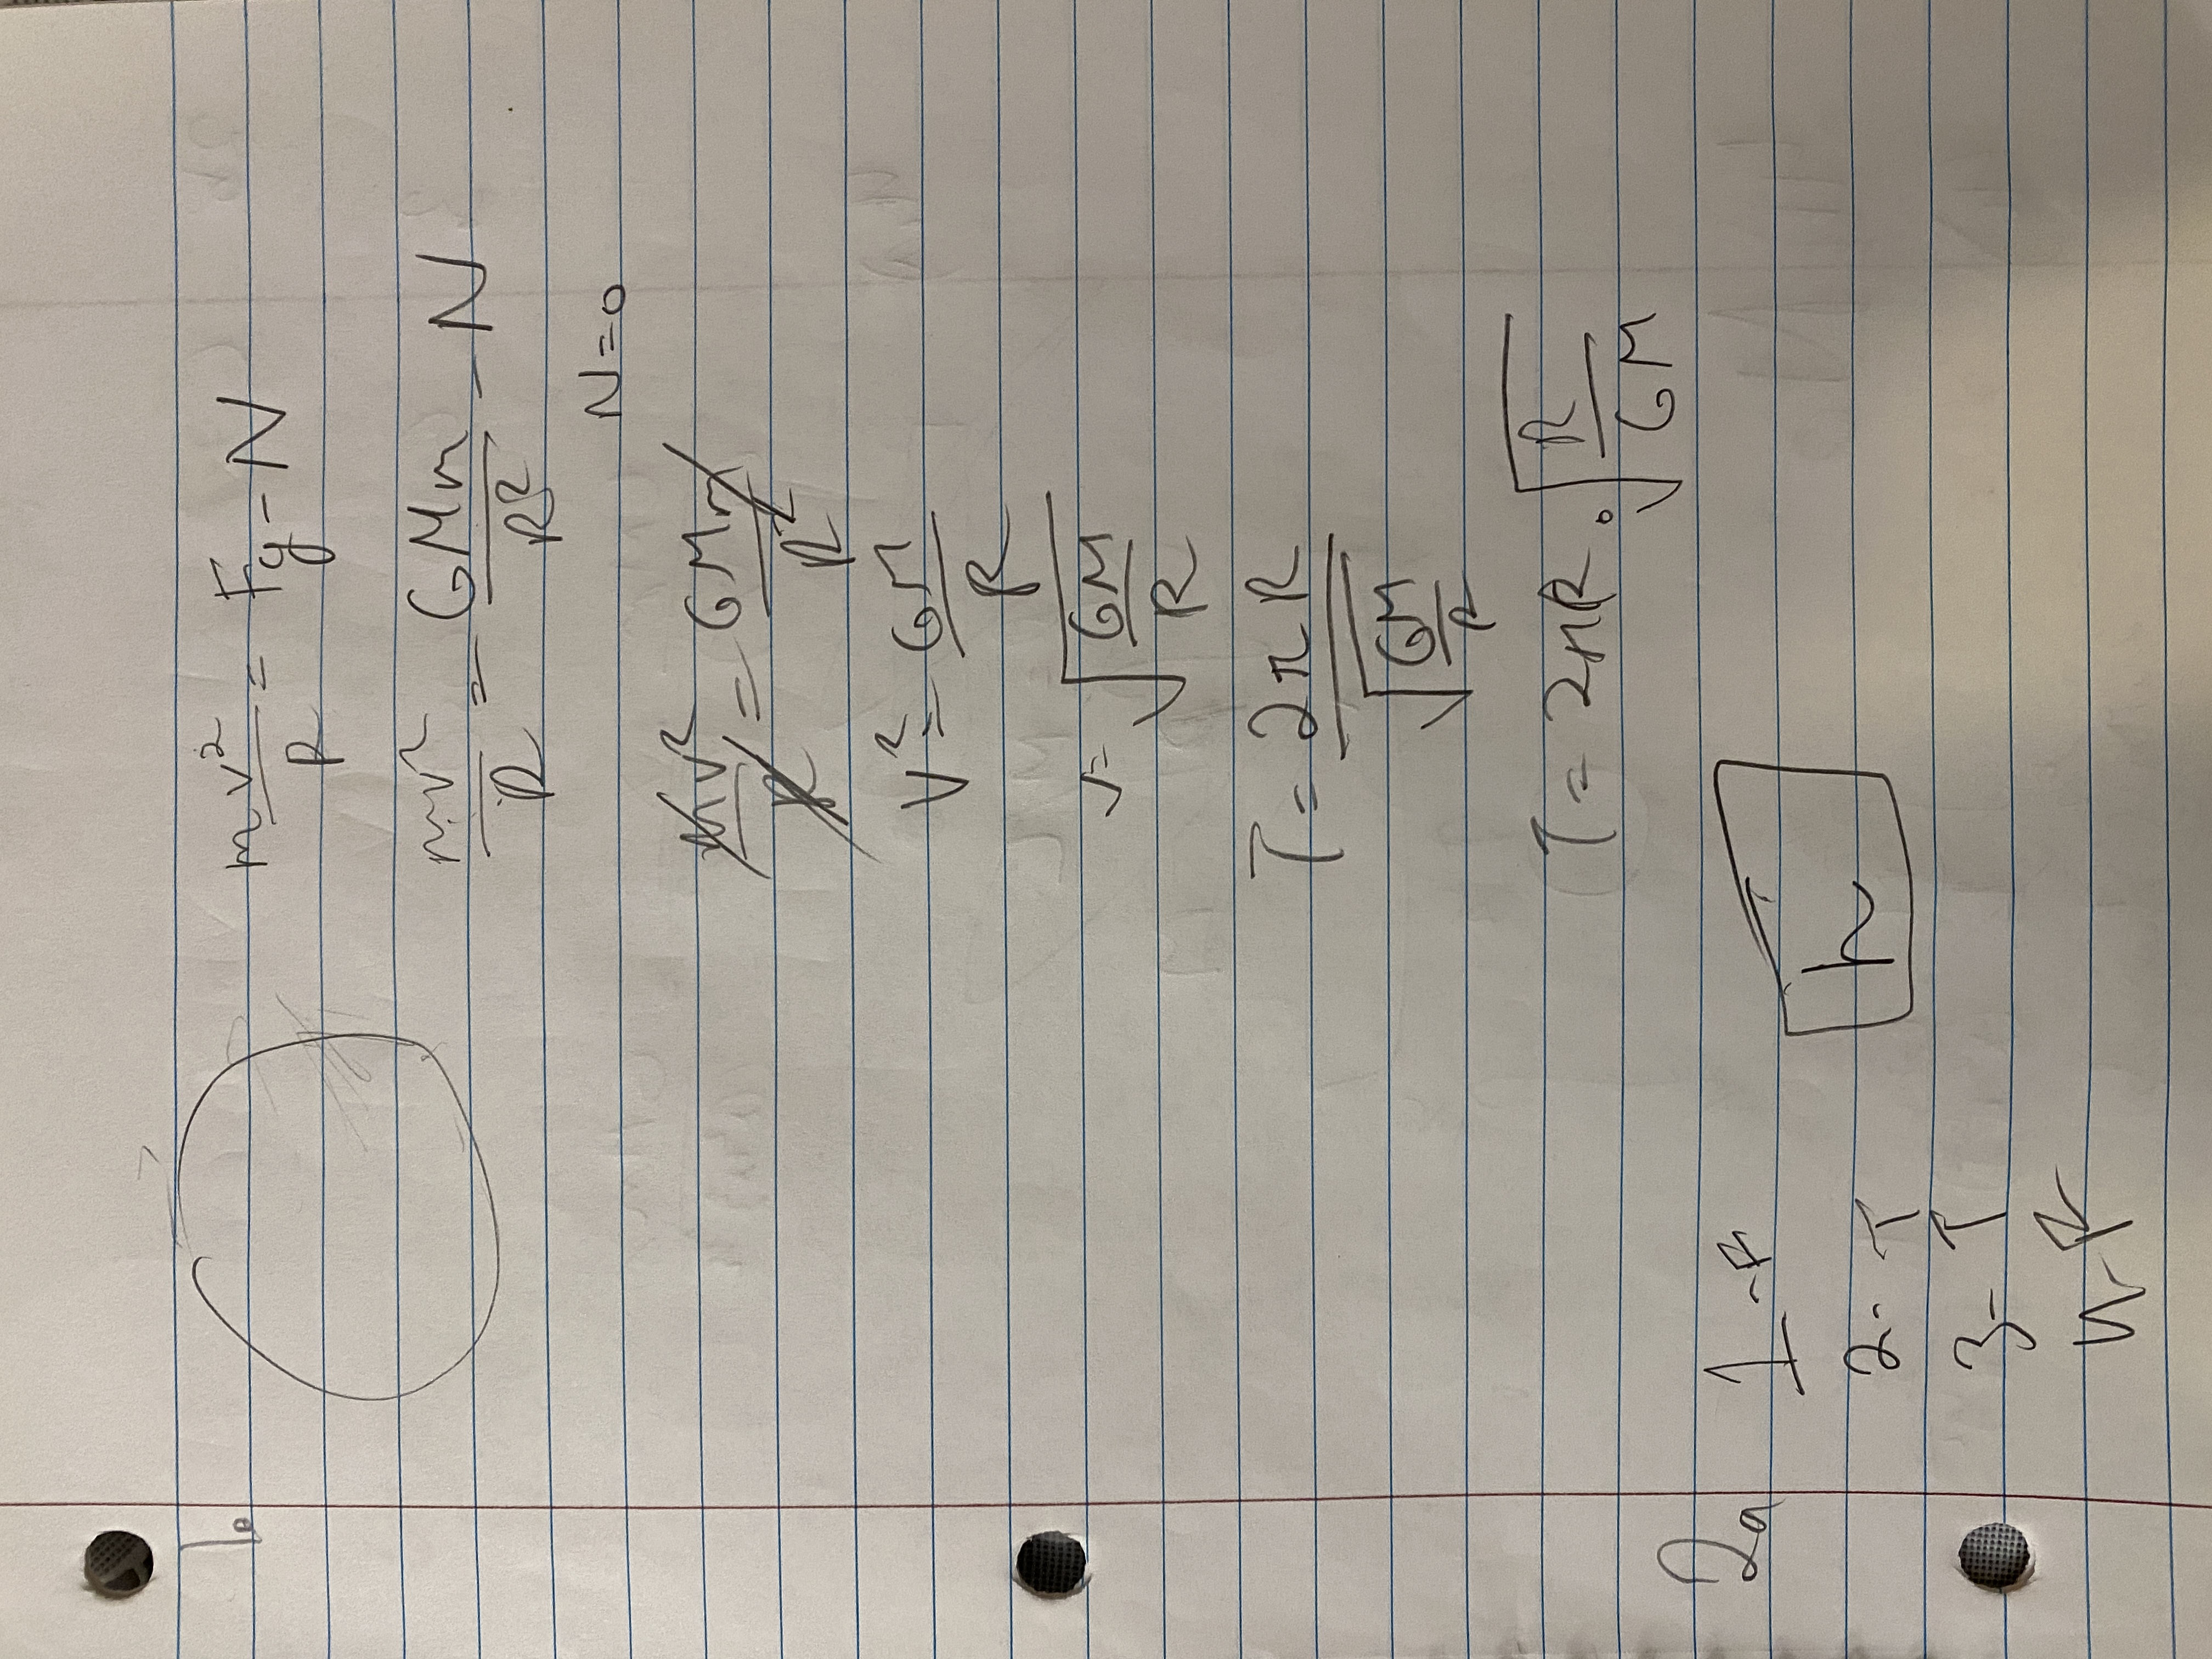 1.
mv²/R = Fg - N
mv²/R = GMm/R² - N
N=0
mv²/R = GMm/R²
V² = GM/R
v = √(GM/R)
T = 2πR/√(GM/R)
T = 2πR · √(R/GM)
2a
1 - F
h
2- T
3- T
4- F